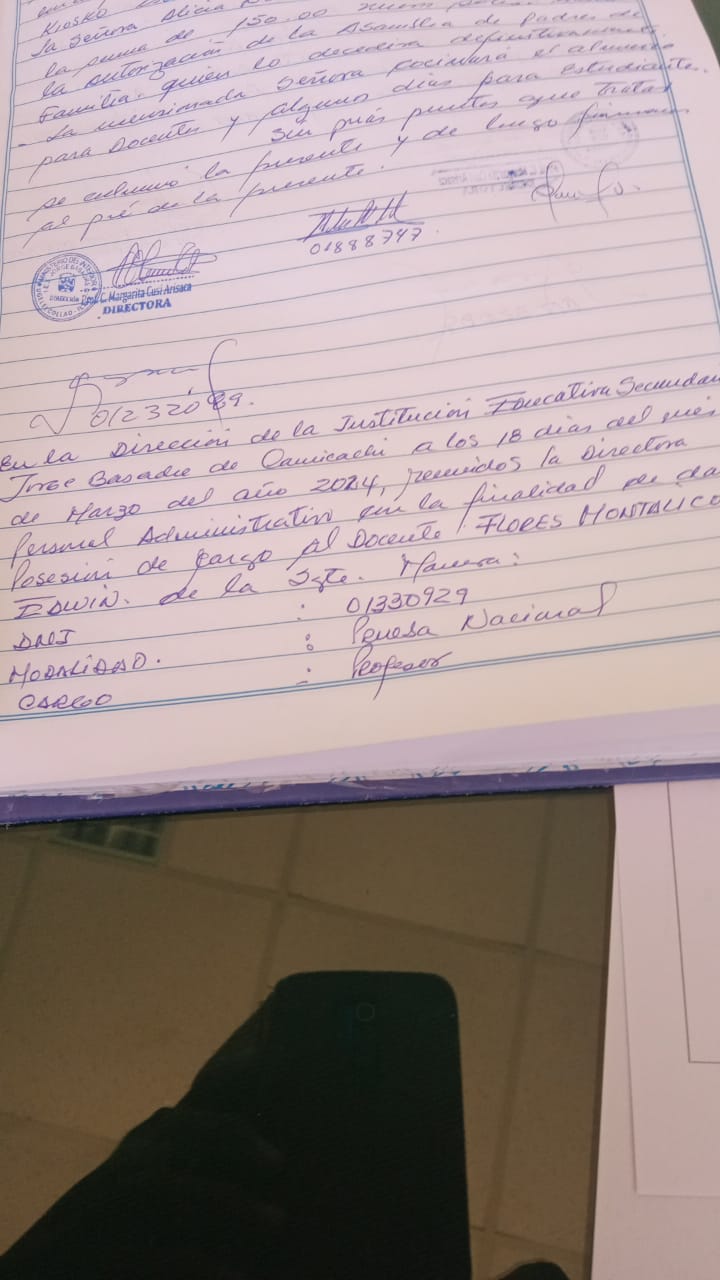 Kiosko
la Señora Alicia
la suma de 150.00
la autorización de la Asamblea de Padres de
Familia. quien lo decedira definitivamente.
- La mencionada Señora cocinará el alimento
para Docentes y algunos dias para estudiantes.
Sin más puntos que tratar
se culminó la presente y de luego firmamos
al pié de la presente.
01888747
MINISTERIO DEL INTERIOR
DIRECCIÓN
Prof. C. Margarita Cusi Arisaca
DIRECTORA
01232089.
En la Dirección de la Institución Educativa Secundar
Jorge Basadre de Camicachi a los 18 dias del més
de Marzo del año 2024, reunidos la Directora
Personal Administrativo con la finalidad de da
Posesión de Cargo al Docente FLORES MONTALICO
EDWIN. de la Sgte. Manera:
DNI : 01330929
MODALIDAD. : Prueba Nacional
CARGO : Profesor